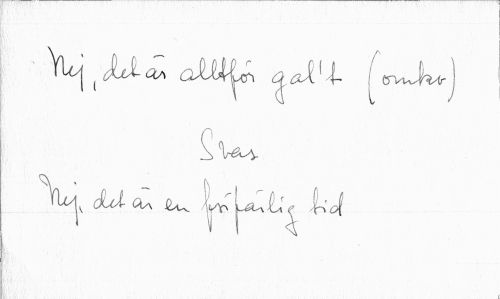 Nej, det är alltför gal't (omkv)
Svas
Nej, det är en förfärlig tid